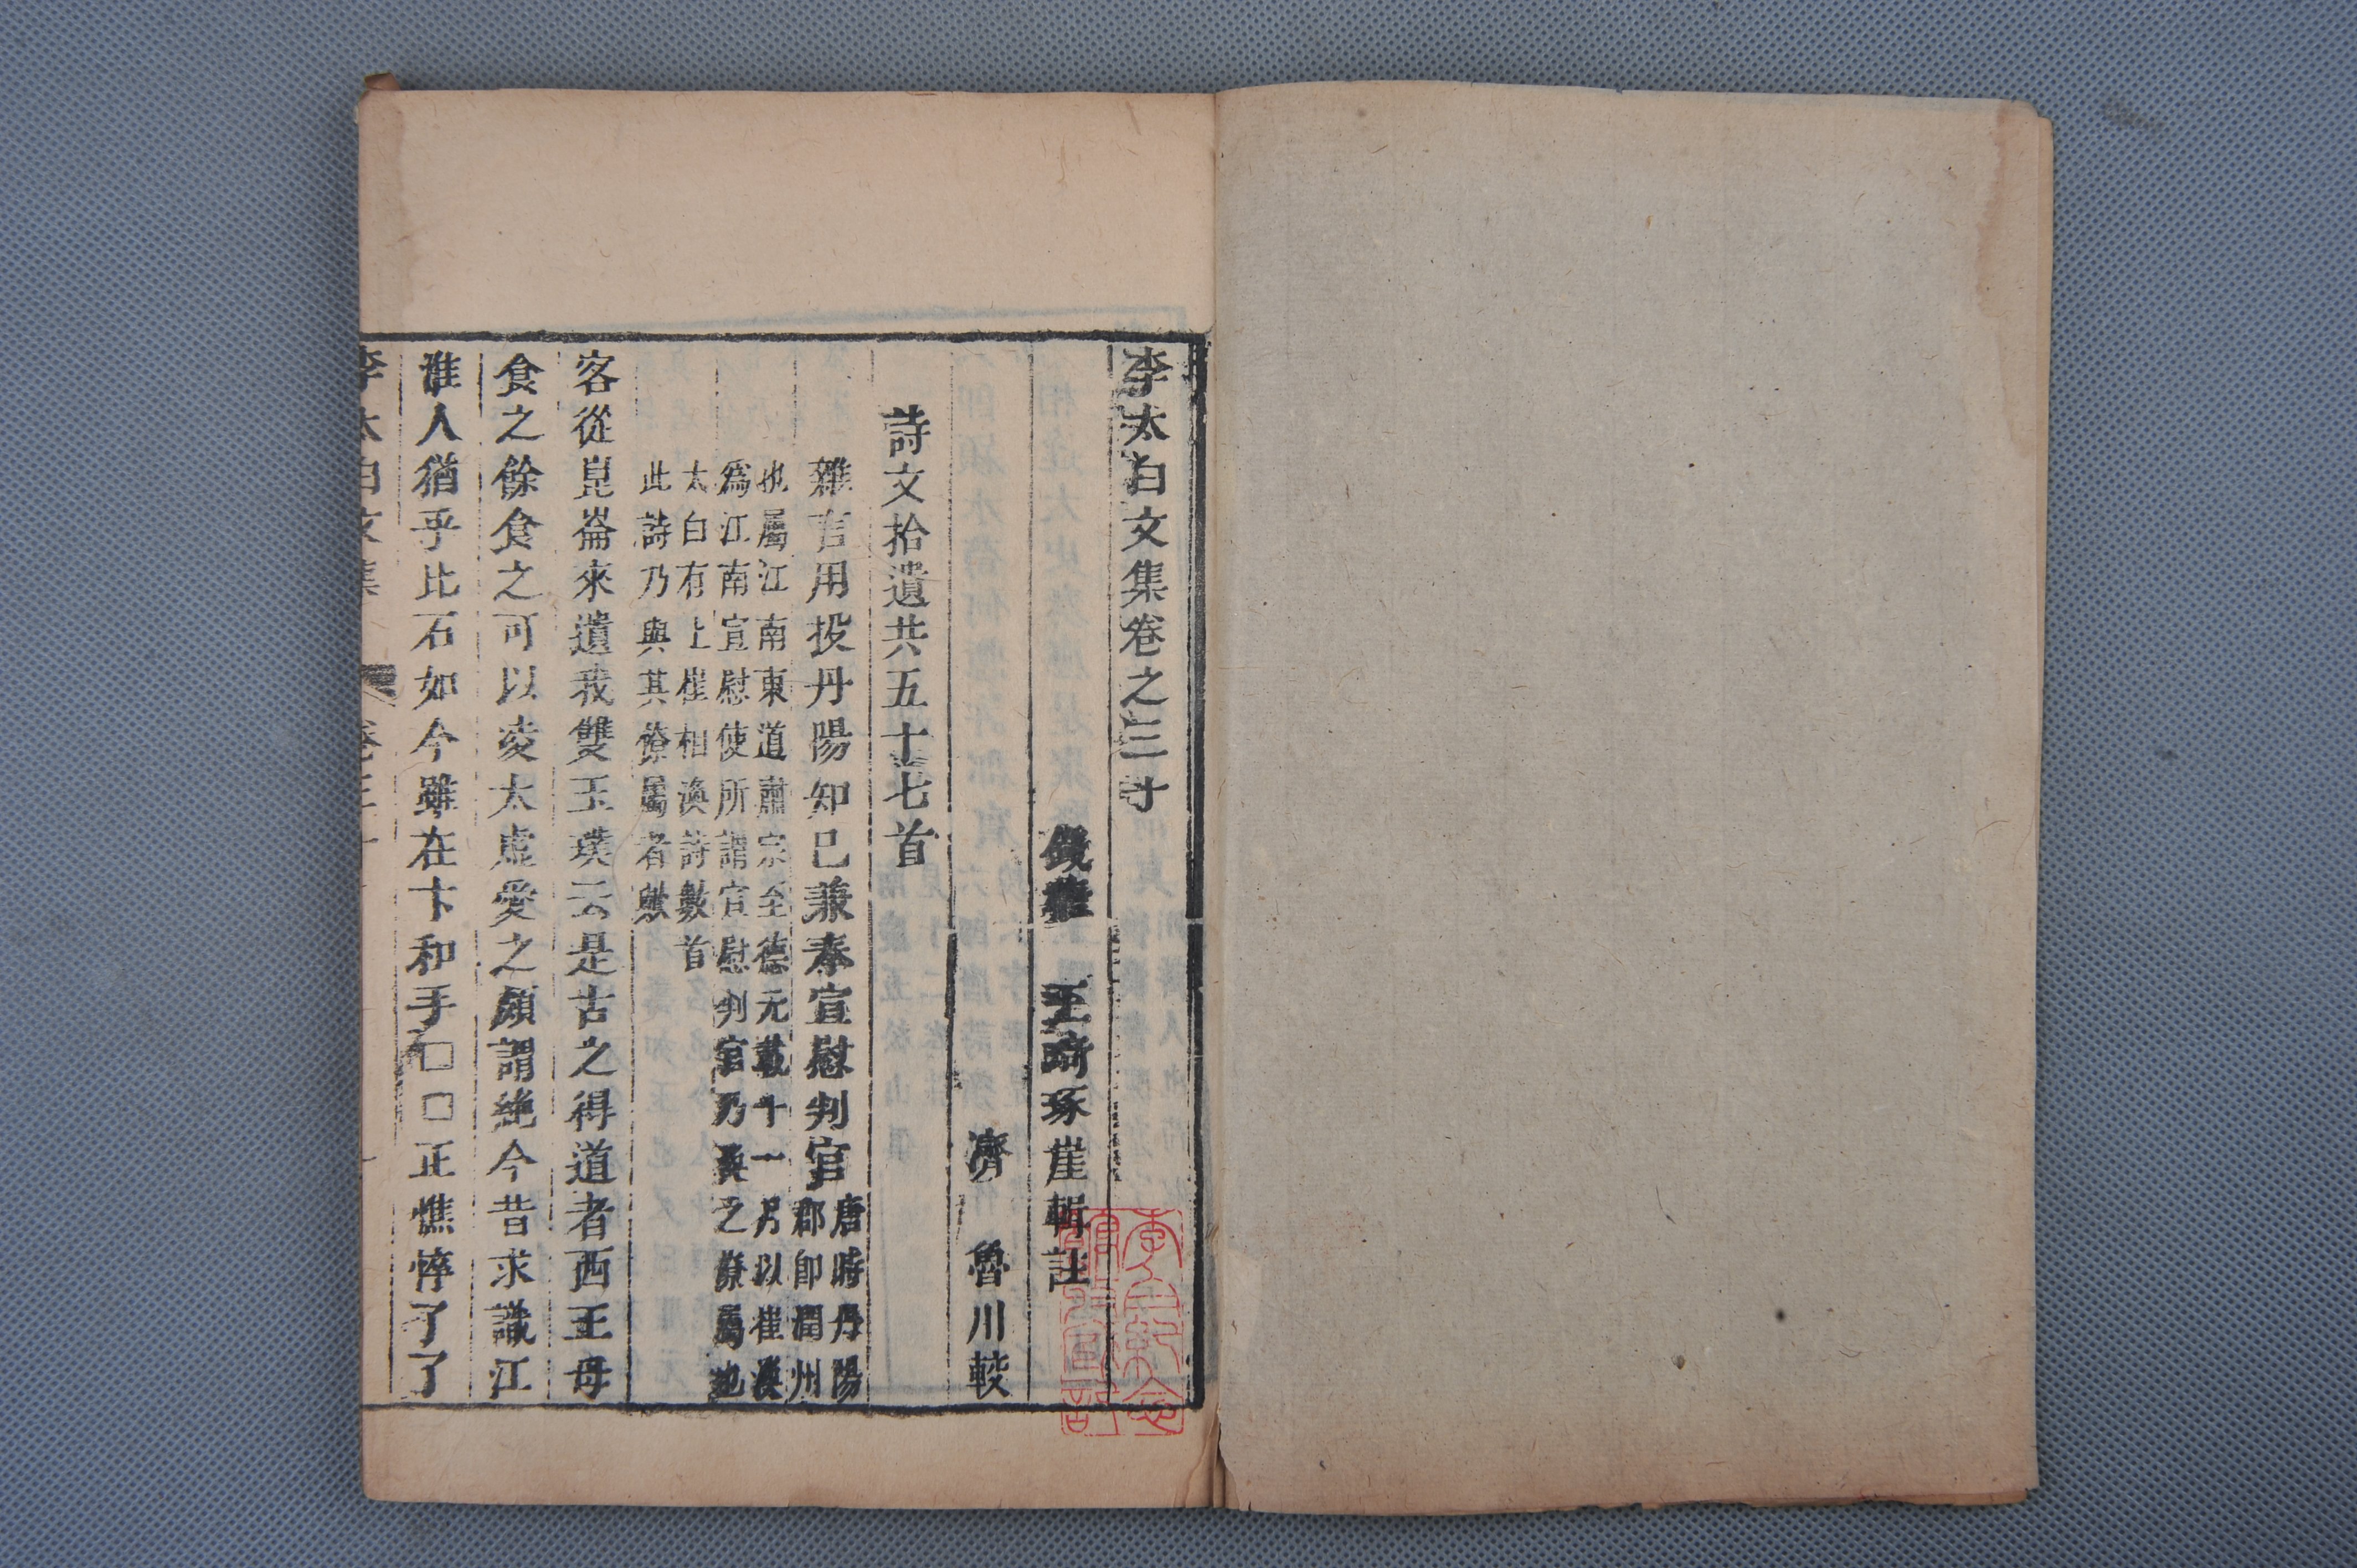 李太白文集卷之三十
錢塘 王琦琢崖輯註
濟 魯川較
詩文拾遺共五十七首
雜言用投丹陽知己兼奉宣慰判官
唐時丹陽
郡即潤州
也屬江南東道肅宗至德元載十一月以崔渙
爲江南宣慰使所謂宣慰判官乃渙之僚屬也
太白有上崔相渙詩數首
此詩乃與其僚屬者歟
客從崑崙來遺我雙玉璞云是古之得道者西王母
食之餘食之可以凌太虛愛之頗謂絶今昔求識江
淮人猶乎比石如今雖在卞和手□□正憔悴了了
李太白文集 卷三十